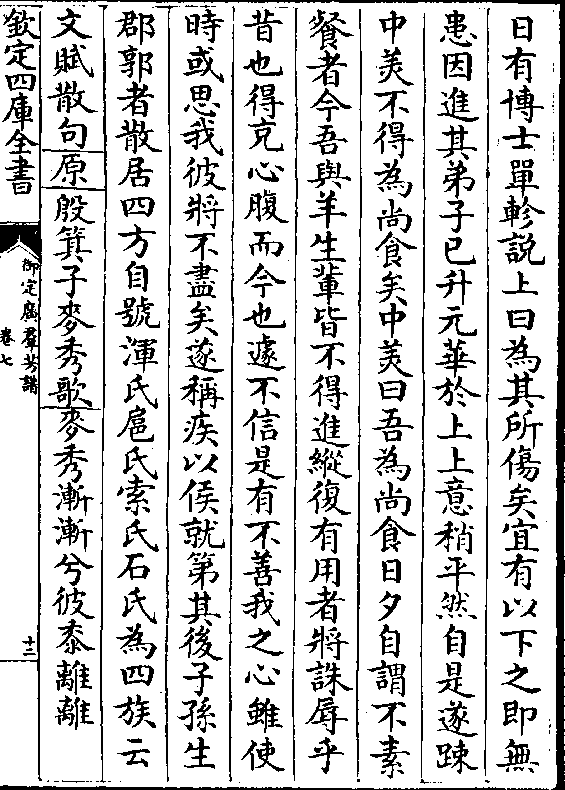 日有博士單軫説上曰為其所傷矣宜有以下之即無
患因進其弟子已升元華於上上意稍平然自是遂踈
中美不得為尚食矣中美曰吾為尚食日夕自謂不素
餐者今吾與羊生輩皆不得進縱復有用者將誅辱乎
昔也得克心腹而今也遽不信是有不善我之心雖使
時或思我彼將不盡矣遂稱疾以侯就第其後子孫生
郡郭者散居四方自號渾氏扈氏索氏石氏為四族云
文賦散句原殷箕子麥秀歌麥秀漸漸兮彼黍離離
欽定四庫全書
御定廣羣芳譜
卷七
十三